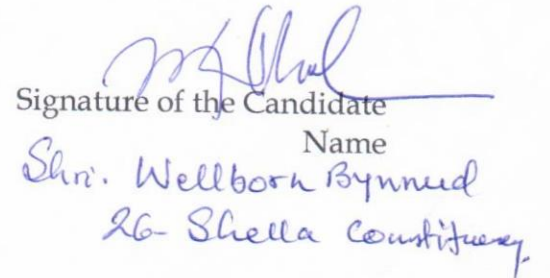 Signature of the Candidate
Name
Shri. Wellborn Bynnud
26- Shella Constituency.